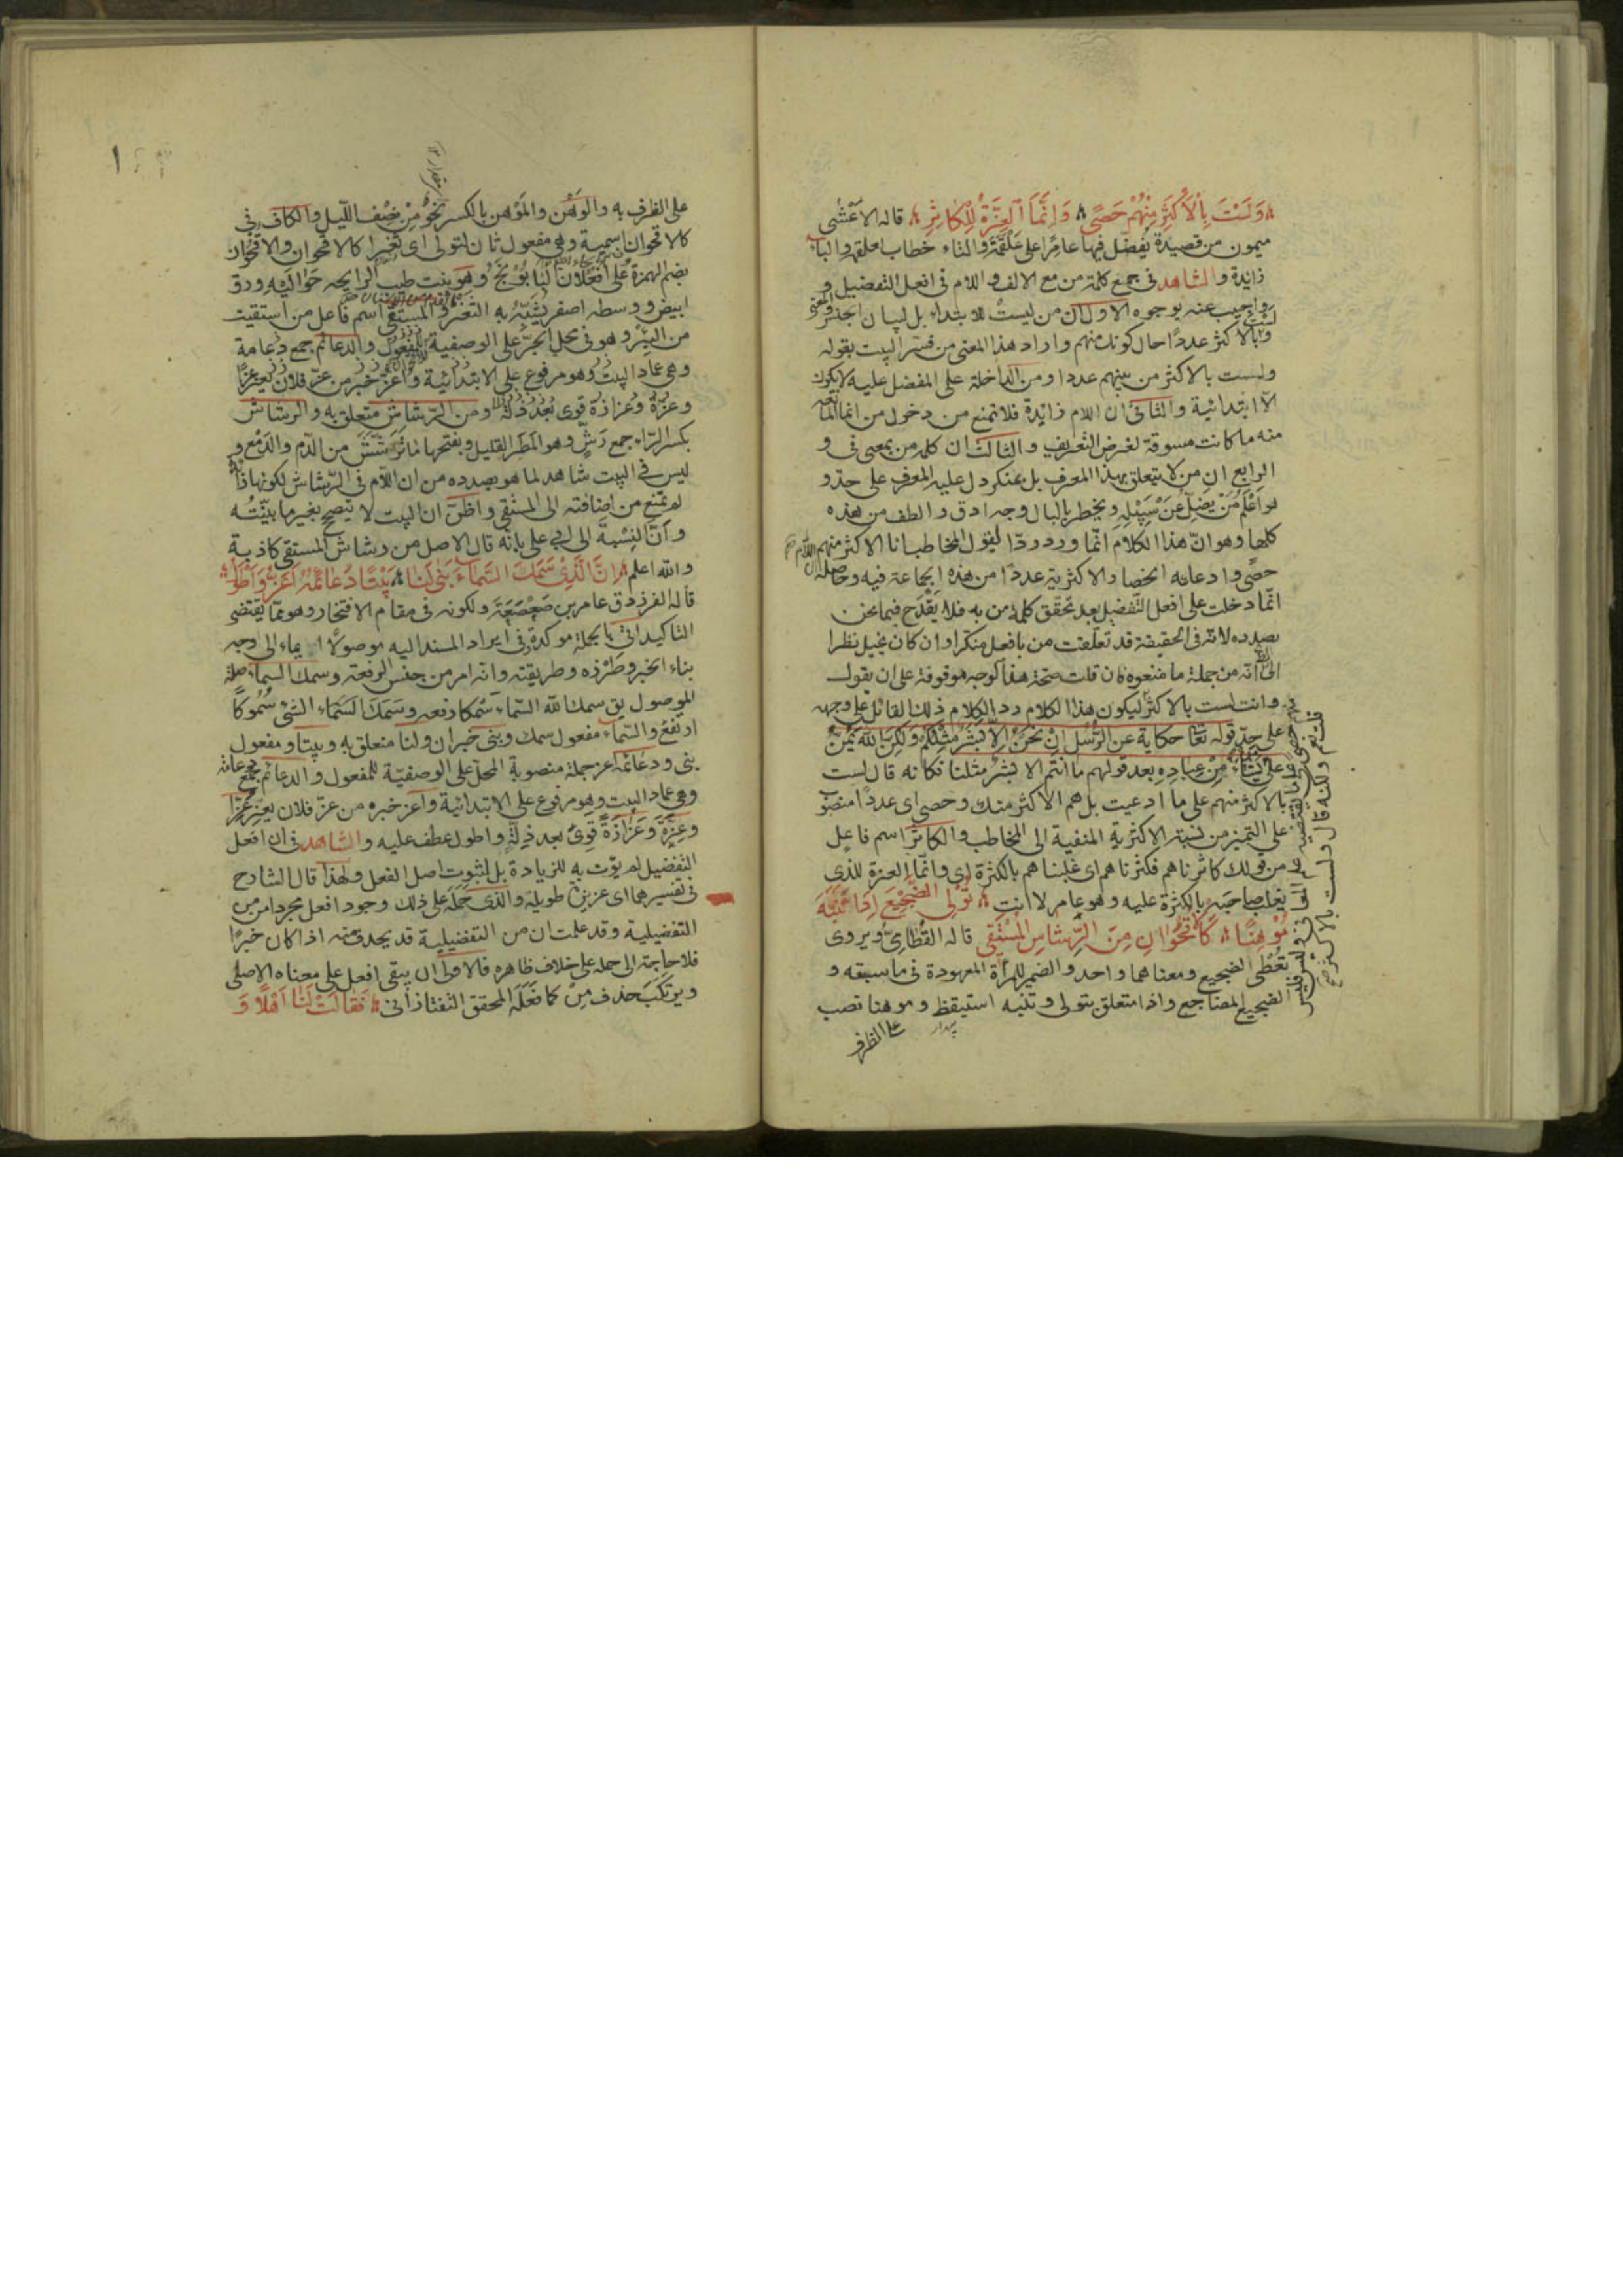 وَلَسْتَ بِالْأَكْثَرِ مِنْهُمْ حَصًى وَإِنَّمَا الْعِزَّةُ لِلْكَاثِرِ قاله الاعشى
ميمون من قصيدة يفضل فيها عامرا على علقمة والتاء خطاب لعلقمة والباء
زايدة والشاهد فى جمع كلمة من مع الالف واللام فى افعل التفضيل و
اجيب عنه بوجوه الاول ان من ليست للابتداء بل لبيان الجنس والمعنى
لست بالاكثر عددا حال كونك منهم واراد هذا المعنى من فسر البيت بقوله
ولست بالاكثر من بينهم عددا ومن الداخلة على المفضل عليه لا يكون
الا ابتدائية والثانى ان اللام زايدة فلا تمنع من دخول من انما المانعة
منه ما كانت مسوقة لغرض التعريف والثالث ان كلمة من بمعنى فى و
الرابع ان من لا يتعلق بهذا المعرف بل بمنكر دل عليه المعرف على حد و
هو اعلم من يضل عن سبيله ويخطر بالبال وجه ادق والطف من هذه
كلها وهو ان هذا الكلام انما ورد ردا لقول المخاطب انا الاكثر منهم
حصى وادعائه انحصار الاكثرية عددا من هذه الجماعة فيه وحاصله ان اللام
انما دخلت على افعل التفضيل بعد تحقق كلمة من به فلا يقدح فيما نحن
بصدده لانه فى الحقيقة قد تعلقت من بافعل منكرا وان كان يخيل نظرا
الى انه من جملة ما منعوه فان قلت صحة هذا الوجه موقوفة على ان يقول
وانت لست بالاكثر ليكون هذا الكلام رد الكلام ذلك القائل على وجهه
على حد قوله تعا حكاية عن الرسل ان نحن الا بشر مثلكم ولكن الله يمن
على من يشاء من عباده بعد قولهم ما انتم الا بشر مثلنا فكانه قال لست
بالاكثر منهم على ما ادعيت بل هم الاكثر منك وحصى اى عددا منصوب
على التميز من نسبة الاكثرية المنفية الى المخاطب والكاثر اسم فاعل
من قولك كاثرناهم فكثرناهم اى غلبناهم بالكثرة اى وانما العزة للذى
يغلب صاحبه بالكثرة عليه وهو عامر لا انت تُولِى الضَّجِيعَ إِذَا تَنَبَّهَ
مَوْهِنًا كَالْأُقْحُوَانِ مِنَ الرِّشَاشِ الْمُسْتَقِى قاله القطامى ويروى
تعطى الضجيع ومعناهما واحد والضمير للمرأة المعهودة فى ما سبقه و
الضجيع المضاجع واذا متعلق بتولى وتنبه استيقظ وموهنا نصب
بيدار
على الظرف
قلت نعم ولكنه قال ولست بالاكثر
على الظرف به والوهن والموهن بالكسر نحو من نصف الليل والكاف فى
كالاقحوان اسمية وهى مفعول ثان لتولى اى ثغرا كالاقحوان والاقحوان
بضم الهمزة على افعلان البابونج وهو نبت طيب الرايحه حواليه ورق
ابيض ووسطه اصفر يشبه به الثغر والمستقى اسم فاعل من استقيت
من البئر وهو فى محل الجر على الوصفية للمفعول والدعائم جمع دعامة
وهى عماد البيت وهو مرفوع على الابتدائية واعز خبر من عز فلان يعز عزا
وعزة وعزازة قوى بعد ذلة ومن الرشاش متعلق به والرشاش
بكسر الراء جمع رش وهو المطر القليل وبفتحها ما ترشش من الدم والدمع و
ليس فى البيت شاهد لما هو بصدده من ان اللام فى الرشاش لكونها زائدة
لم تمنع من اضافته الى المستقى واظن ان البيت لا يتصح بغير ما بينته
وان النسبة الى ابى على بانه قال الاصل من رشاش المستقى كاذبة
والله اعلم إِنَّ الَّذِى سَمَكَ السَّمَاءَ بَنَى لَنَا بَيْتًا دَعَائِمُهُ أَعَزُّ وَأَطْوَلُ
قاله الفرزدق عامر بن صعصعة ولكونه فى مقام الافتخار وهو مما يقتضى
التاكيد اتى بالجملة موكدة فى ايراد المسند اليه موصولا ايماء الى وجه
بناء الخبر وطرزه وطريقته وانه امر من جنس الرفعة وسمك السماء صلة
الموصول يق سمك الله السماء سمكا رفعه وسمك السماء الشئ سموكا
ارتفع والسماء مفعول سمك وبنى خبر ان ولنا متعلق به وبيتا مفعول
بنى ودعائمه اعز جملة منصوبة المحل على الوصفية للمفعول والدعائم جمع دعامة
وهى عماد البيت وهو مرفوع على الابتدائية واعز خبره من عز فلان يعز عزا
وعزة وعزازة قوى بعد ذلة واطول عطف عليه والشاهد فى ان افعل
التفضيل لم يؤت به للزيادة بل لثبوت اصل الفعل ولهذا قال الشارح
فى تفسيرهما اى عزيزة طويلة والذى حمله على ذلك وجود افعل مجردا من من
التفضيلية وقد علمت ان من التفضيلية قد يحذف منه اذا كان خبرا
فلا حاجة الى حمله على خلاف ظاهره فالاولى ان يبقى افعل على معناه الاصلى
ويرتكب حذف من كما فعله المحقق التفتازانى فَقَالَتْ لَنَا أَهْلًا وَ